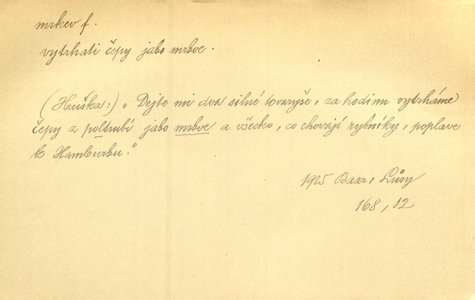 mrkev f.
vytrhati čepy jako mrkve.
(Hruška:) „Dejte mi dva silné tovaryše, za hodinu vytrháme
čepy z poltrubí jako mrkve a všecko, co chovají rybníky, poplave
k Hamburku."
1925 Baar, Lůsy
168, 12